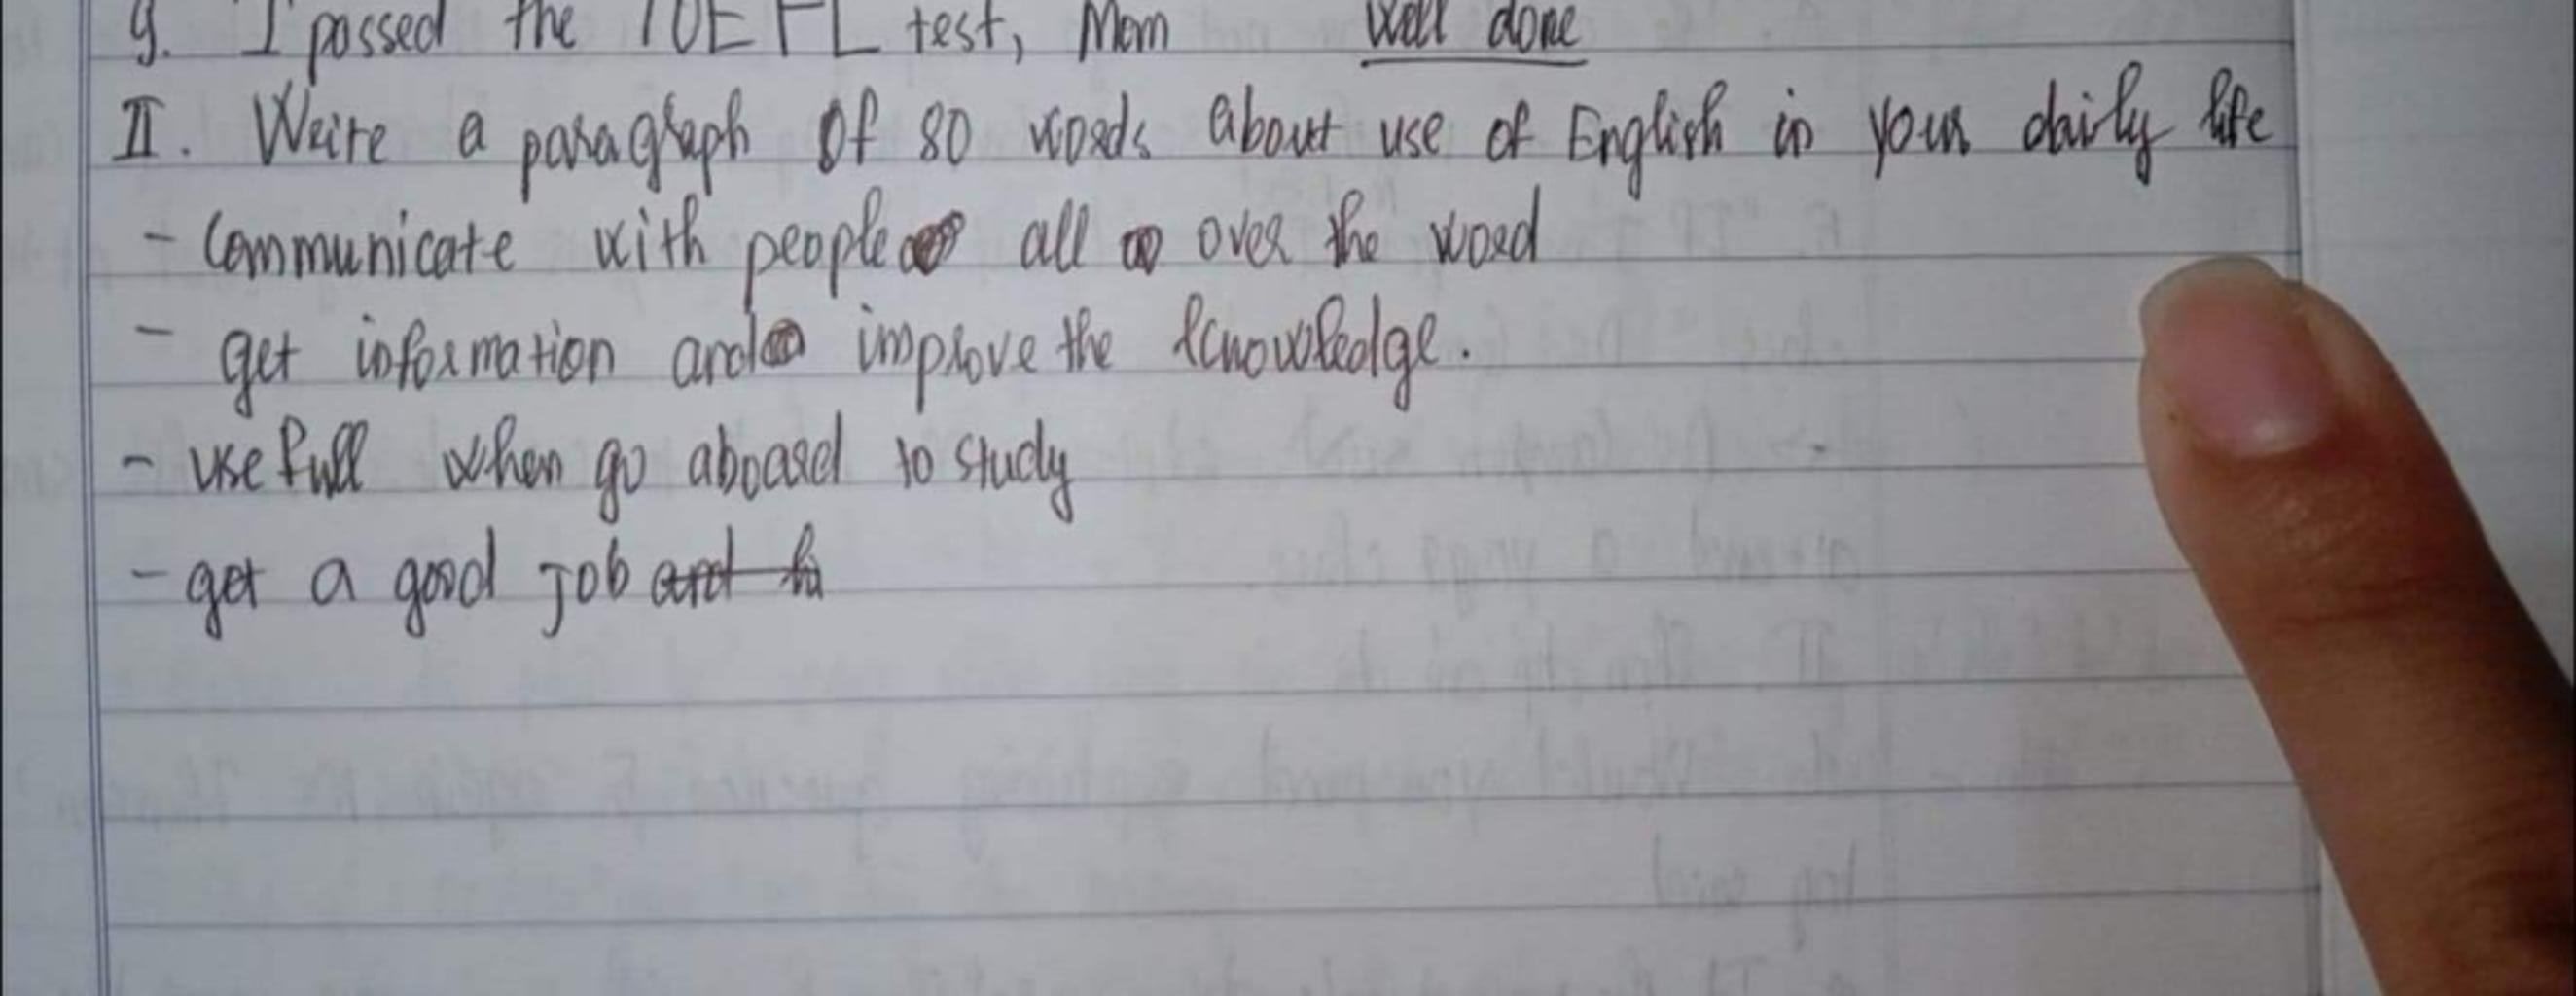 9. I passed the TOEFL test, Mom well done
II. Write a paragraph of 80 words about use of English in your daily life
- Communicate with people all over the word
- get information and improve the knowledge.
- use full when go aboard to study
- get a good Job and